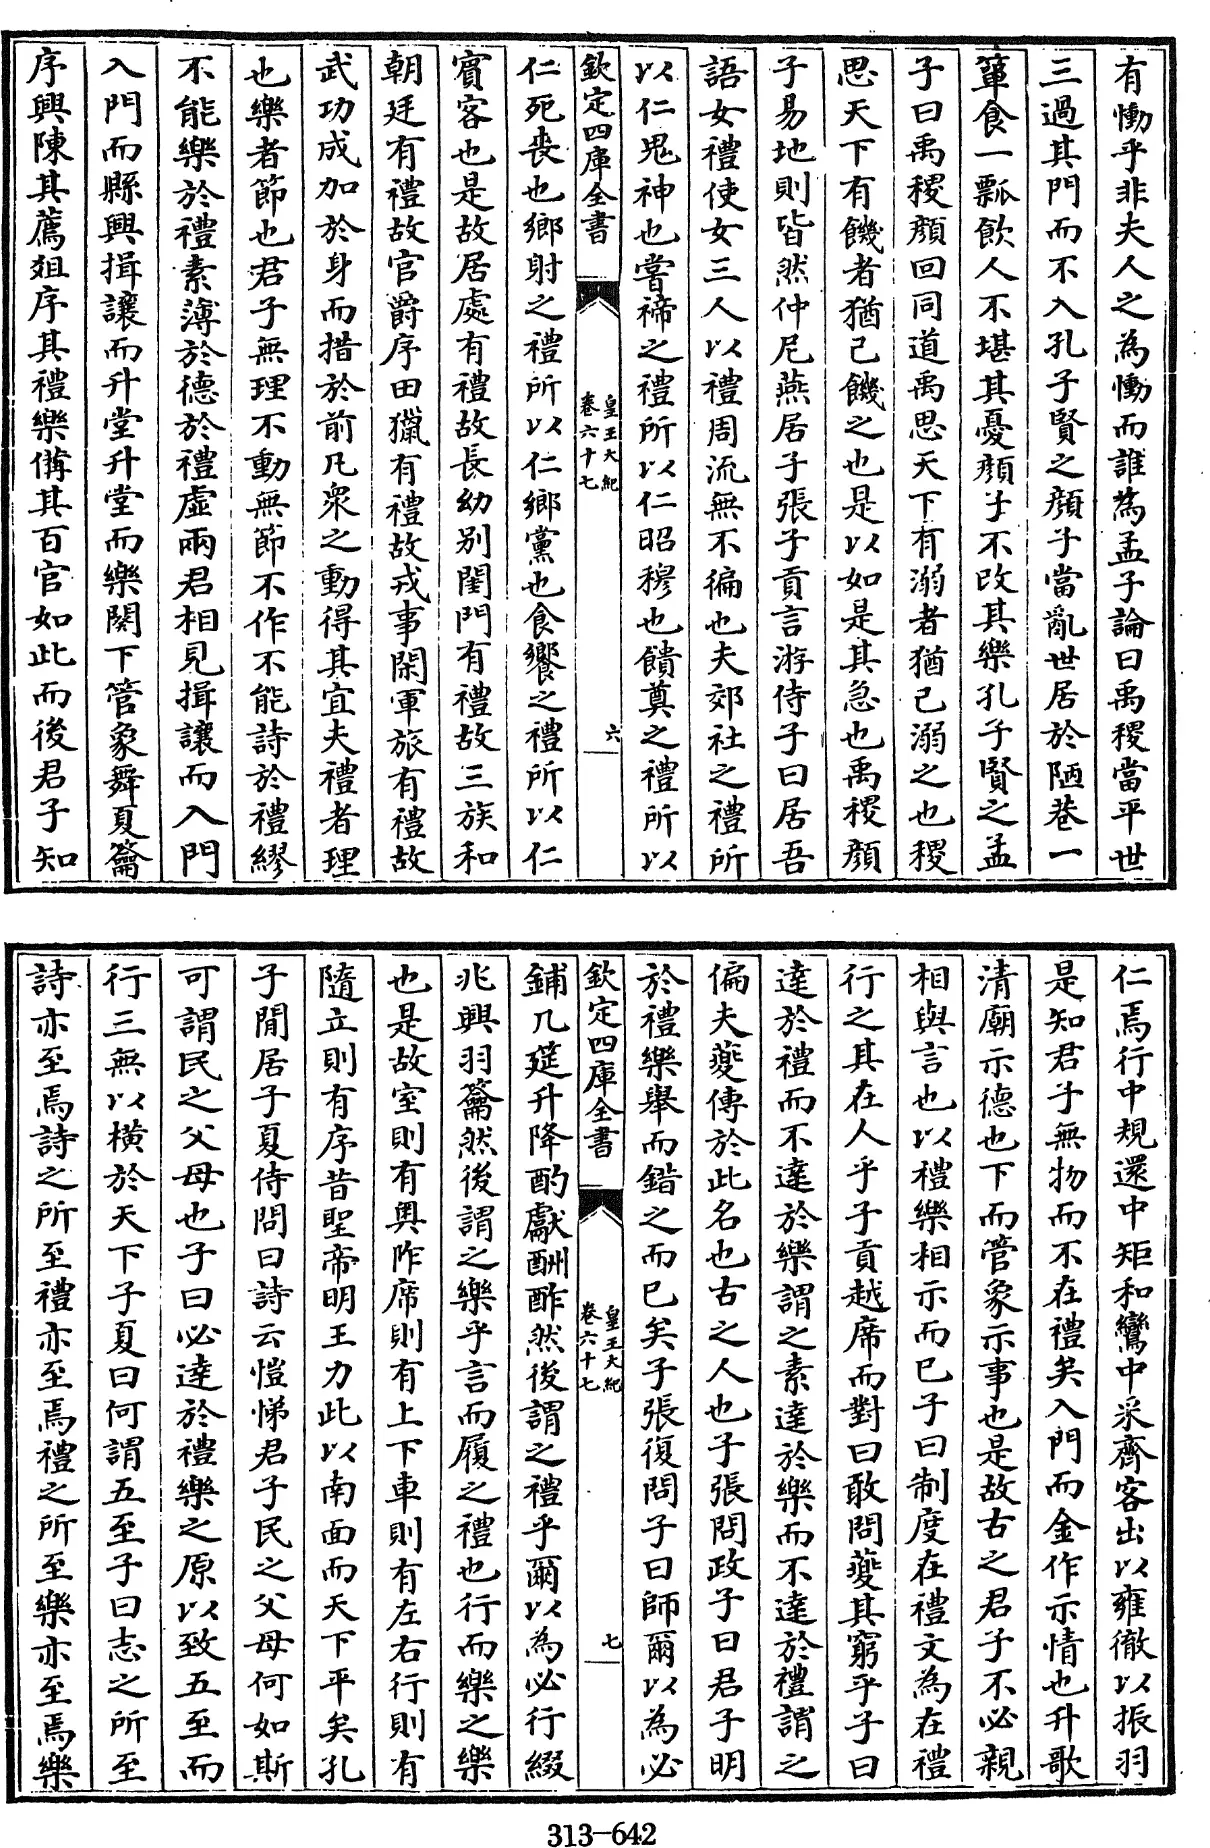 有慟乎非夫人之為慟而誰為孟子論曰禹稷當平世
三過其門而不入孔子賢之顏子當亂世居於陋巷一
簞食一瓢飲人不堪其憂顏子不改其樂孔子賢之孟
子曰禹稷顏回同道禹思天下有溺者猶己溺之也稷
思天下有饑者猶己饑之也是以如是其急也禹稷顏
子易地則皆然仲尼燕居子張子貢言游侍子曰居吾
語女禮使女三人以禮周流無不徧也夫郊社之禮所
以仁鬼神也嘗禘之禮所以仁昭穆也饋奠之禮所以
欽定四庫全書
皇王大紀
卷六十七
六
仁死喪也鄉射之禮所以仁鄉黨也食饗之禮所以仁
賓客也是故居處有禮故長幼别閨門有禮故三族和
朝廷有禮故官爵序田獵有禮故戎事閑軍旅有禮故
武功成加於身而措於前凡衆之動得其宜夫禮者理
也樂者節也君子無理不動無節不作不能詩於禮繆
不能樂於禮素薄於德於禮虛兩君相見揖讓而入門
入門而縣興揖讓而升堂升堂而樂闋下管象舞夏籥
序興陳其薦俎序其禮樂備其百官如此而後君子知
仁焉行中規還中矩和鸞中采齊客出以雍徹以振羽
是知君子無物而不在禮矣入門而金作示情也升歌
清廟示德也下而管象示事也是故古之君子不必親
相與言也以禮樂相示而已子曰制度在禮文為在禮
行之其在人乎子貢越席而對曰敢問夔其窮乎子曰
達於禮而不達於樂謂之素達於樂而不達於禮謂之
偏夫夔傳於此名也古之人也子張問政子曰君子明
於禮樂舉而錯之而已矣子張復問子曰師爾以為必
欽定四庫全書
皇王大紀
卷六十七
七
鋪几筵升降酌獻酬酢然後謂之禮乎爾以為必行綴
兆興羽籥然後謂之樂乎言而履之禮也行而樂之樂
也是故室則有奧阼席則有上下車則有左右行則有
隨立則有序昔聖帝明王力此以南面而天下平矣孔
子閒居子夏侍問曰詩云愷悌君子民之父母何如斯
可謂民之父母也子曰必達於禮樂之原以致五至而
行三無以橫於天下子夏曰何謂五至子曰志之所至
詩亦至焉詩之所至禮亦至焉禮之所至樂亦至焉樂
313-642